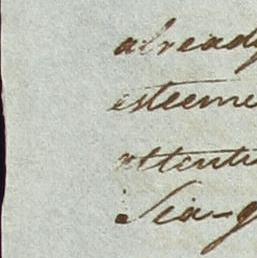 already
esteeme
attenti
Sea-g